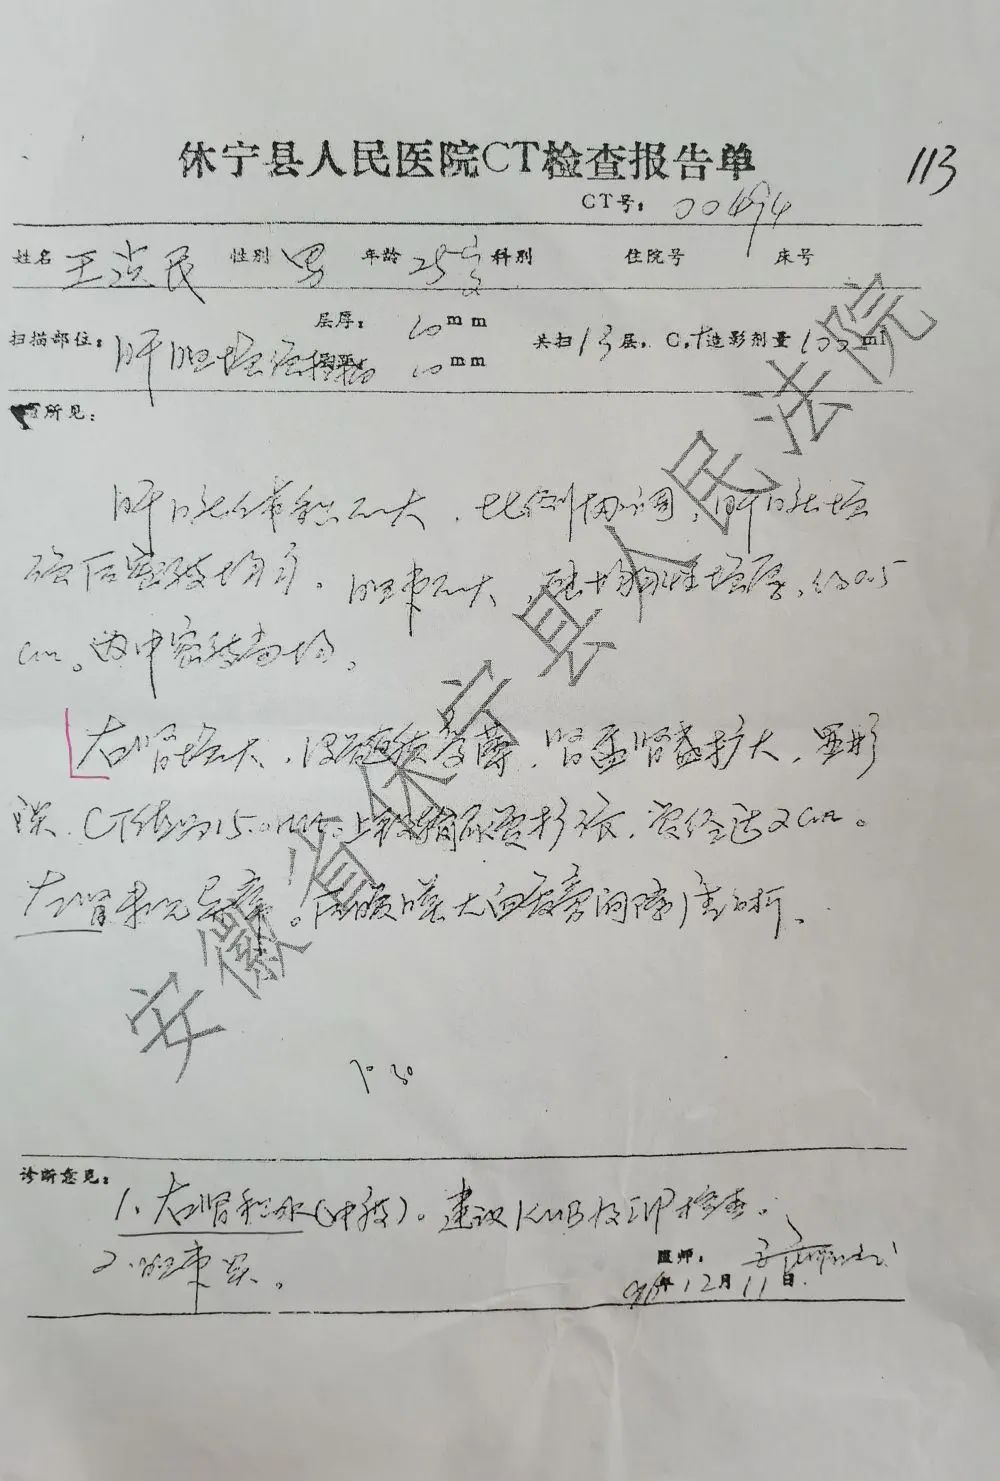 休宁县人民医院CT检查报告单
113
CT号: 00494
姓名 王 民 性别 男 年龄 25岁 科别 住院号 床号
层厚: 10mm
扫描部位: 肝胆增强 10mm 共扫13层, 造影剂量100ml
所见:
肝脏体积不大,比例协调,肝脏增
强后密度均匀。胆囊不大,壁均匀性增厚,约0.5
cm。内中密度尚均。
右肾增大,皮质变薄,肾盂肾盏扩大,
CT值为15. 上段输尿管扩张,管径达2cm。
左肾未见异常。后腹膜大血管旁间隙清晰。
诊断意见:
1. 右肾积水(中度)。建议KUB及IVP检查。
2. 胆囊炎。
医师:
年12月11日
安徽省休宁县人民法院